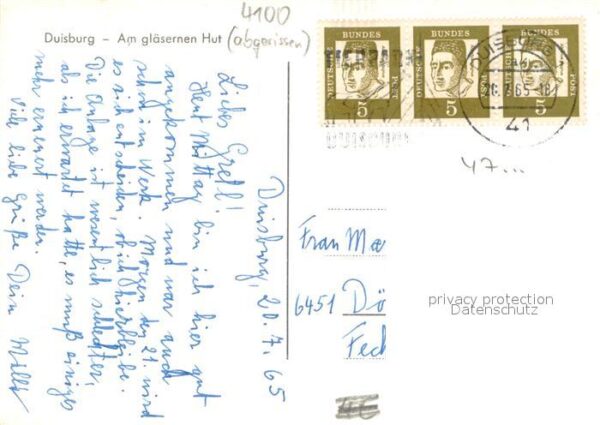 4100
Duisburg - Am gläsernen Hut (abgerissen)
DEUTSCHE BUNDES POST 5
DEUTSCHE BUNDES POST 5
DEUTSCHE BUNDES POST 5
DUISBURG
65-18
41
47...
Duisburg, 20.7.65
Liebes Gretl!
Heut Mittag bin ich hier gut
angekommen und war auch
schon im Werk. Morgen den 21. wird
es sich entscheiden, ob ich hierbleibe.
Die Anlage ist wesentlich schlechter,
als ich erwartet hatte, es muß einiges
mehr erneuert werden.
Viele liebe Grüße Dein Willi
Frau Mae
6451 Dö
Fech
privacy protection
Datenschutz